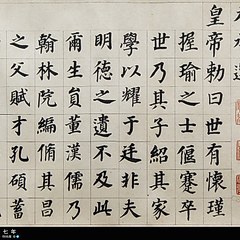 承運
皇帝勅曰世有懷瑾
握瑜之士偃蹇卒
世乃其子紹其家
學以耀于廷非夫
明德之遺不及此
爾生員董漢儒乃
翰林院編脩其昌
之父賦才孔碩蓄
七年